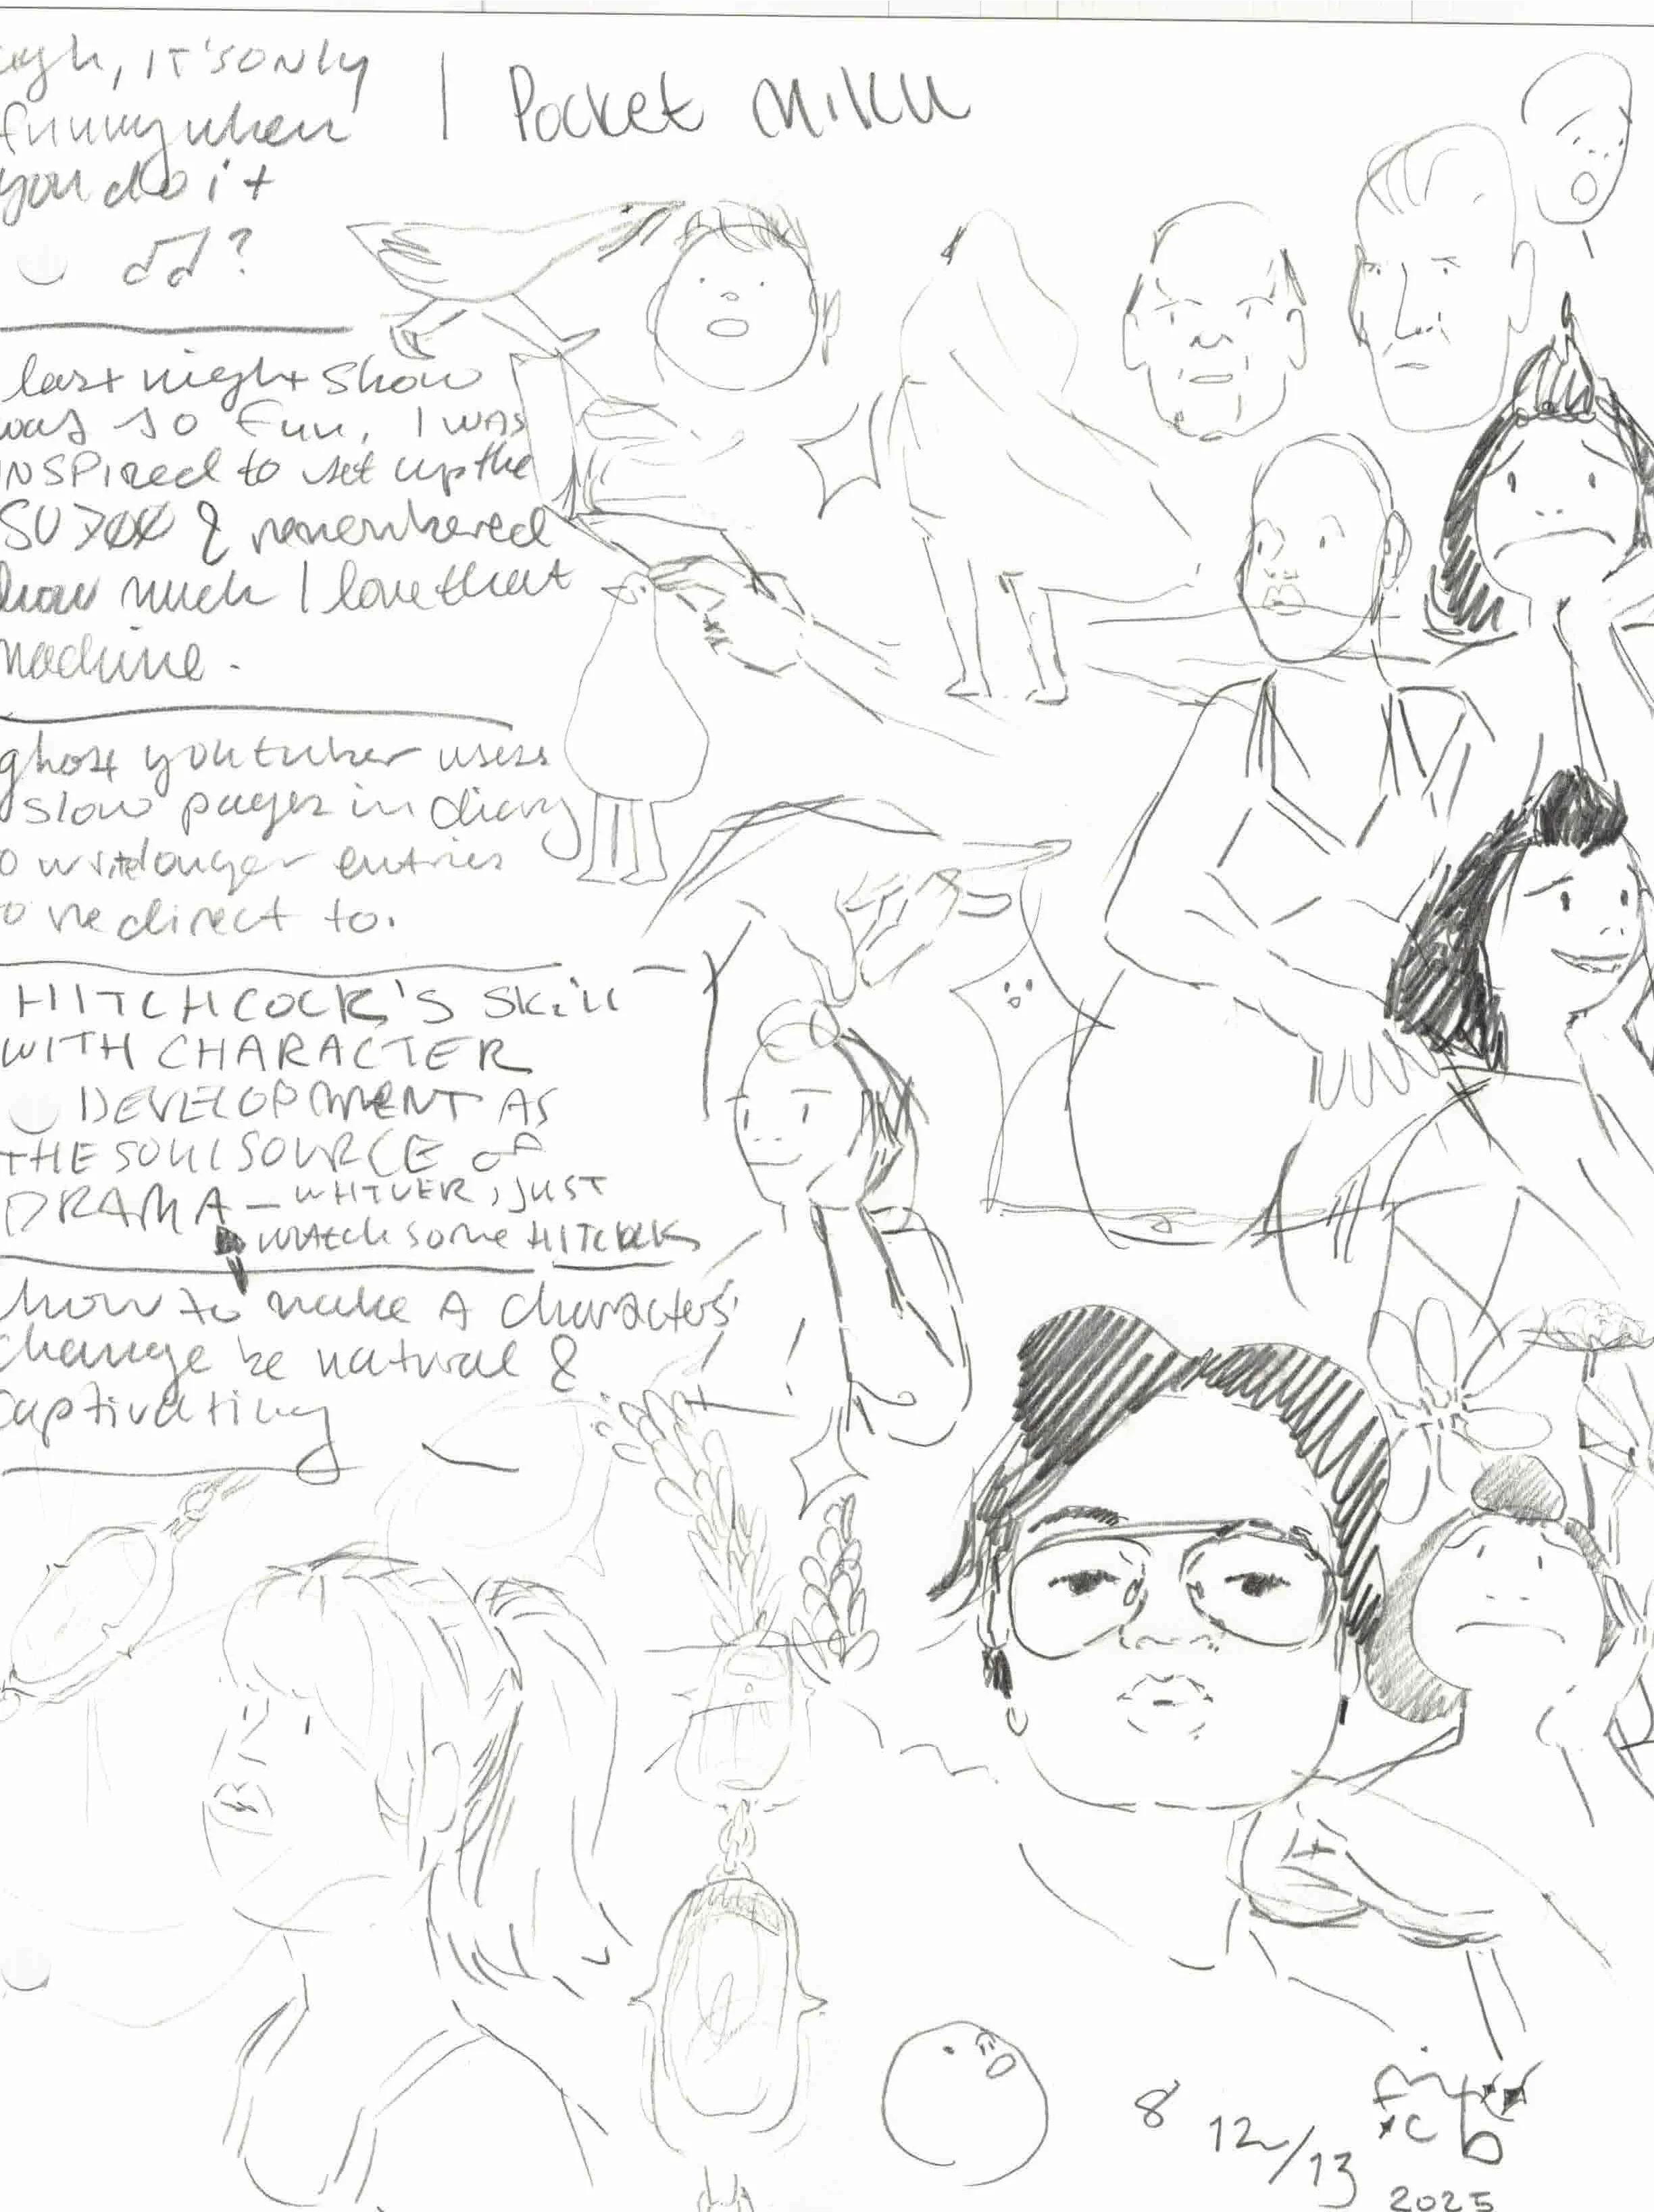 ugh, IT'S ONLY
funny when
you do it
♫?
Pocket Miku
last night show
was so fun, I was
INSPired to set up the
SU700 & remembered
how much I love that
machine.
ghost youtuber uses
slow pages in diary
longer entries
redirect to.
HITCHCOCK'S Skill
WITH CHARACTER
DEVELOPMENT AS
THE SOUL SOURCE of
DRAMA – WHTVER, JUST
WATCH some HITCHCOCK
how to make A characters'
change be natural &
captivating
8
12/13
2025